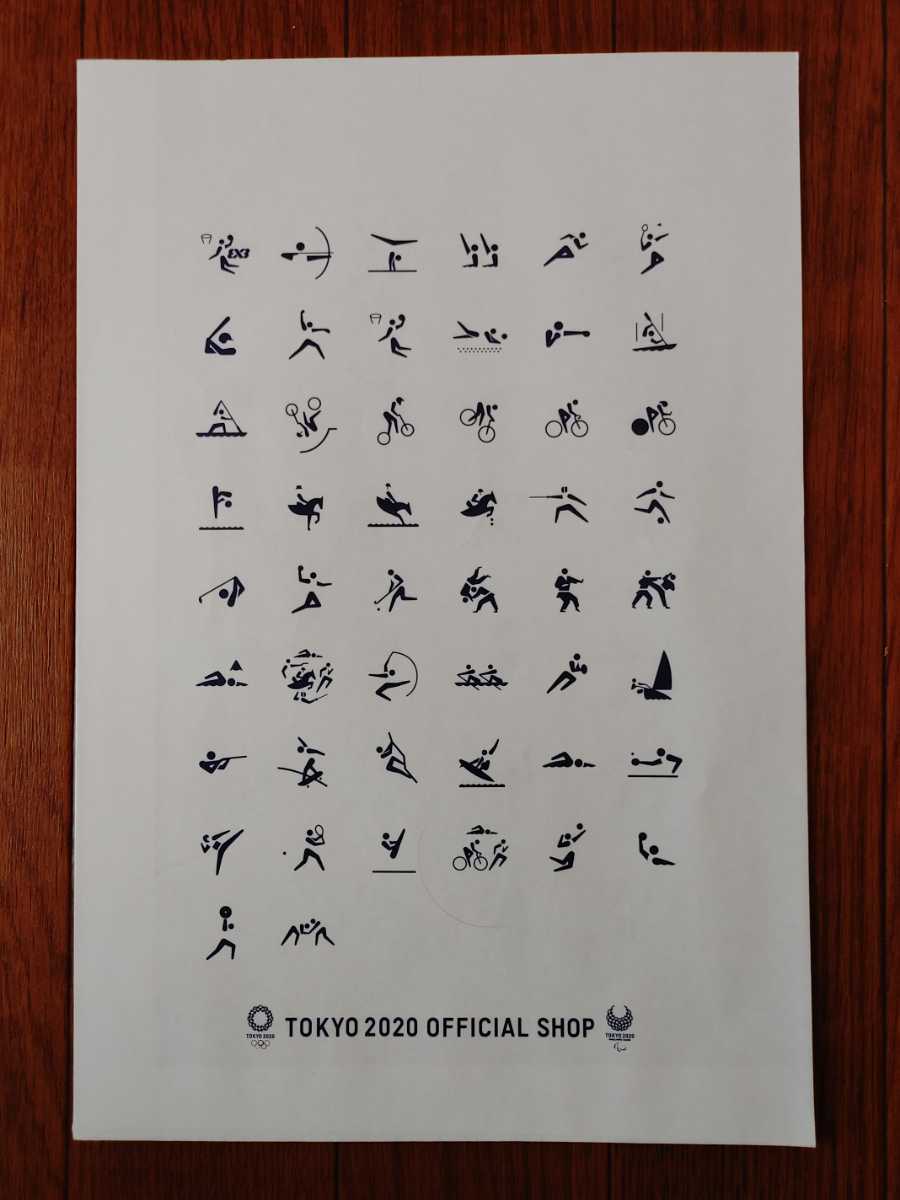 3X3
TOKYO 2020 OFFICIAL SHOP
TOKYO 2020
TOKYO 2020